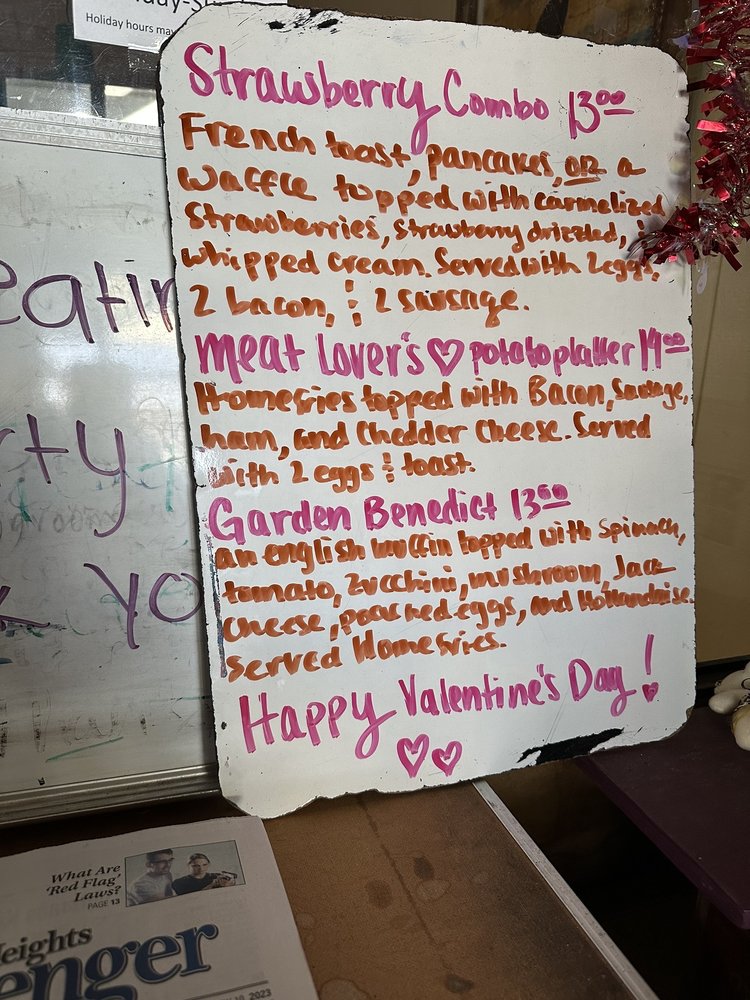 Holiday hours may
Strawberry Combo 13⁰⁰
French toast, pancakes, or a
waffle topped with carmelized
strawberries, strawberry drizzled, &
whipped cream. Served with 2 eggs,
2 bacon, & 2 sausage.
Meat Lover's ♡ potato platter 14⁰⁰
Homefries topped with Bacon, Sausage,
ham, and Chedder Cheese. Served
with 2 eggs & toast.
Garden Benedict 13⁰⁰
an english muffin topped with Spinach,
tomato, Zucchini, mushroom, Jack
cheese, poached eggs, and Hollandaise.
Served Homefries.
Happy Valentine's Day!
♡♡
eatin
rty
k yo
What Are
'Red Flag'
Laws?
PAGE 13
Heights
enger
2023